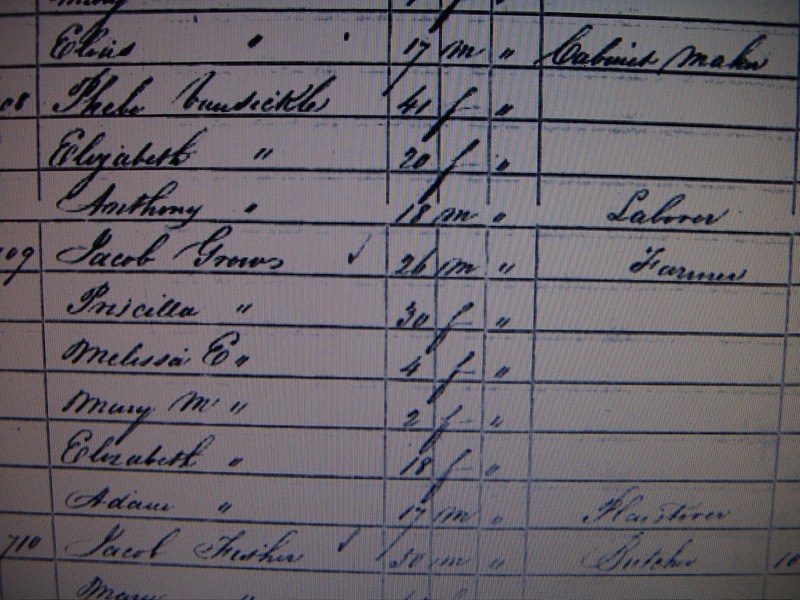 Elias " " 17 m " Cabinet Maker
08 Phebe Vansickle 41 f "
Elizabeth " 20 f "
Anthony " 18 m " Laborer
709 Jacob Grows 26 m " Farmer
Priscilla " 30 f "
Melissa E " 4 f "
Mary M " 2 f "
Elizabeth " 18 f "
Adam " 17 m " Plasterer
710 Jacob Fisher 30 m " Butcher 10
Mary "